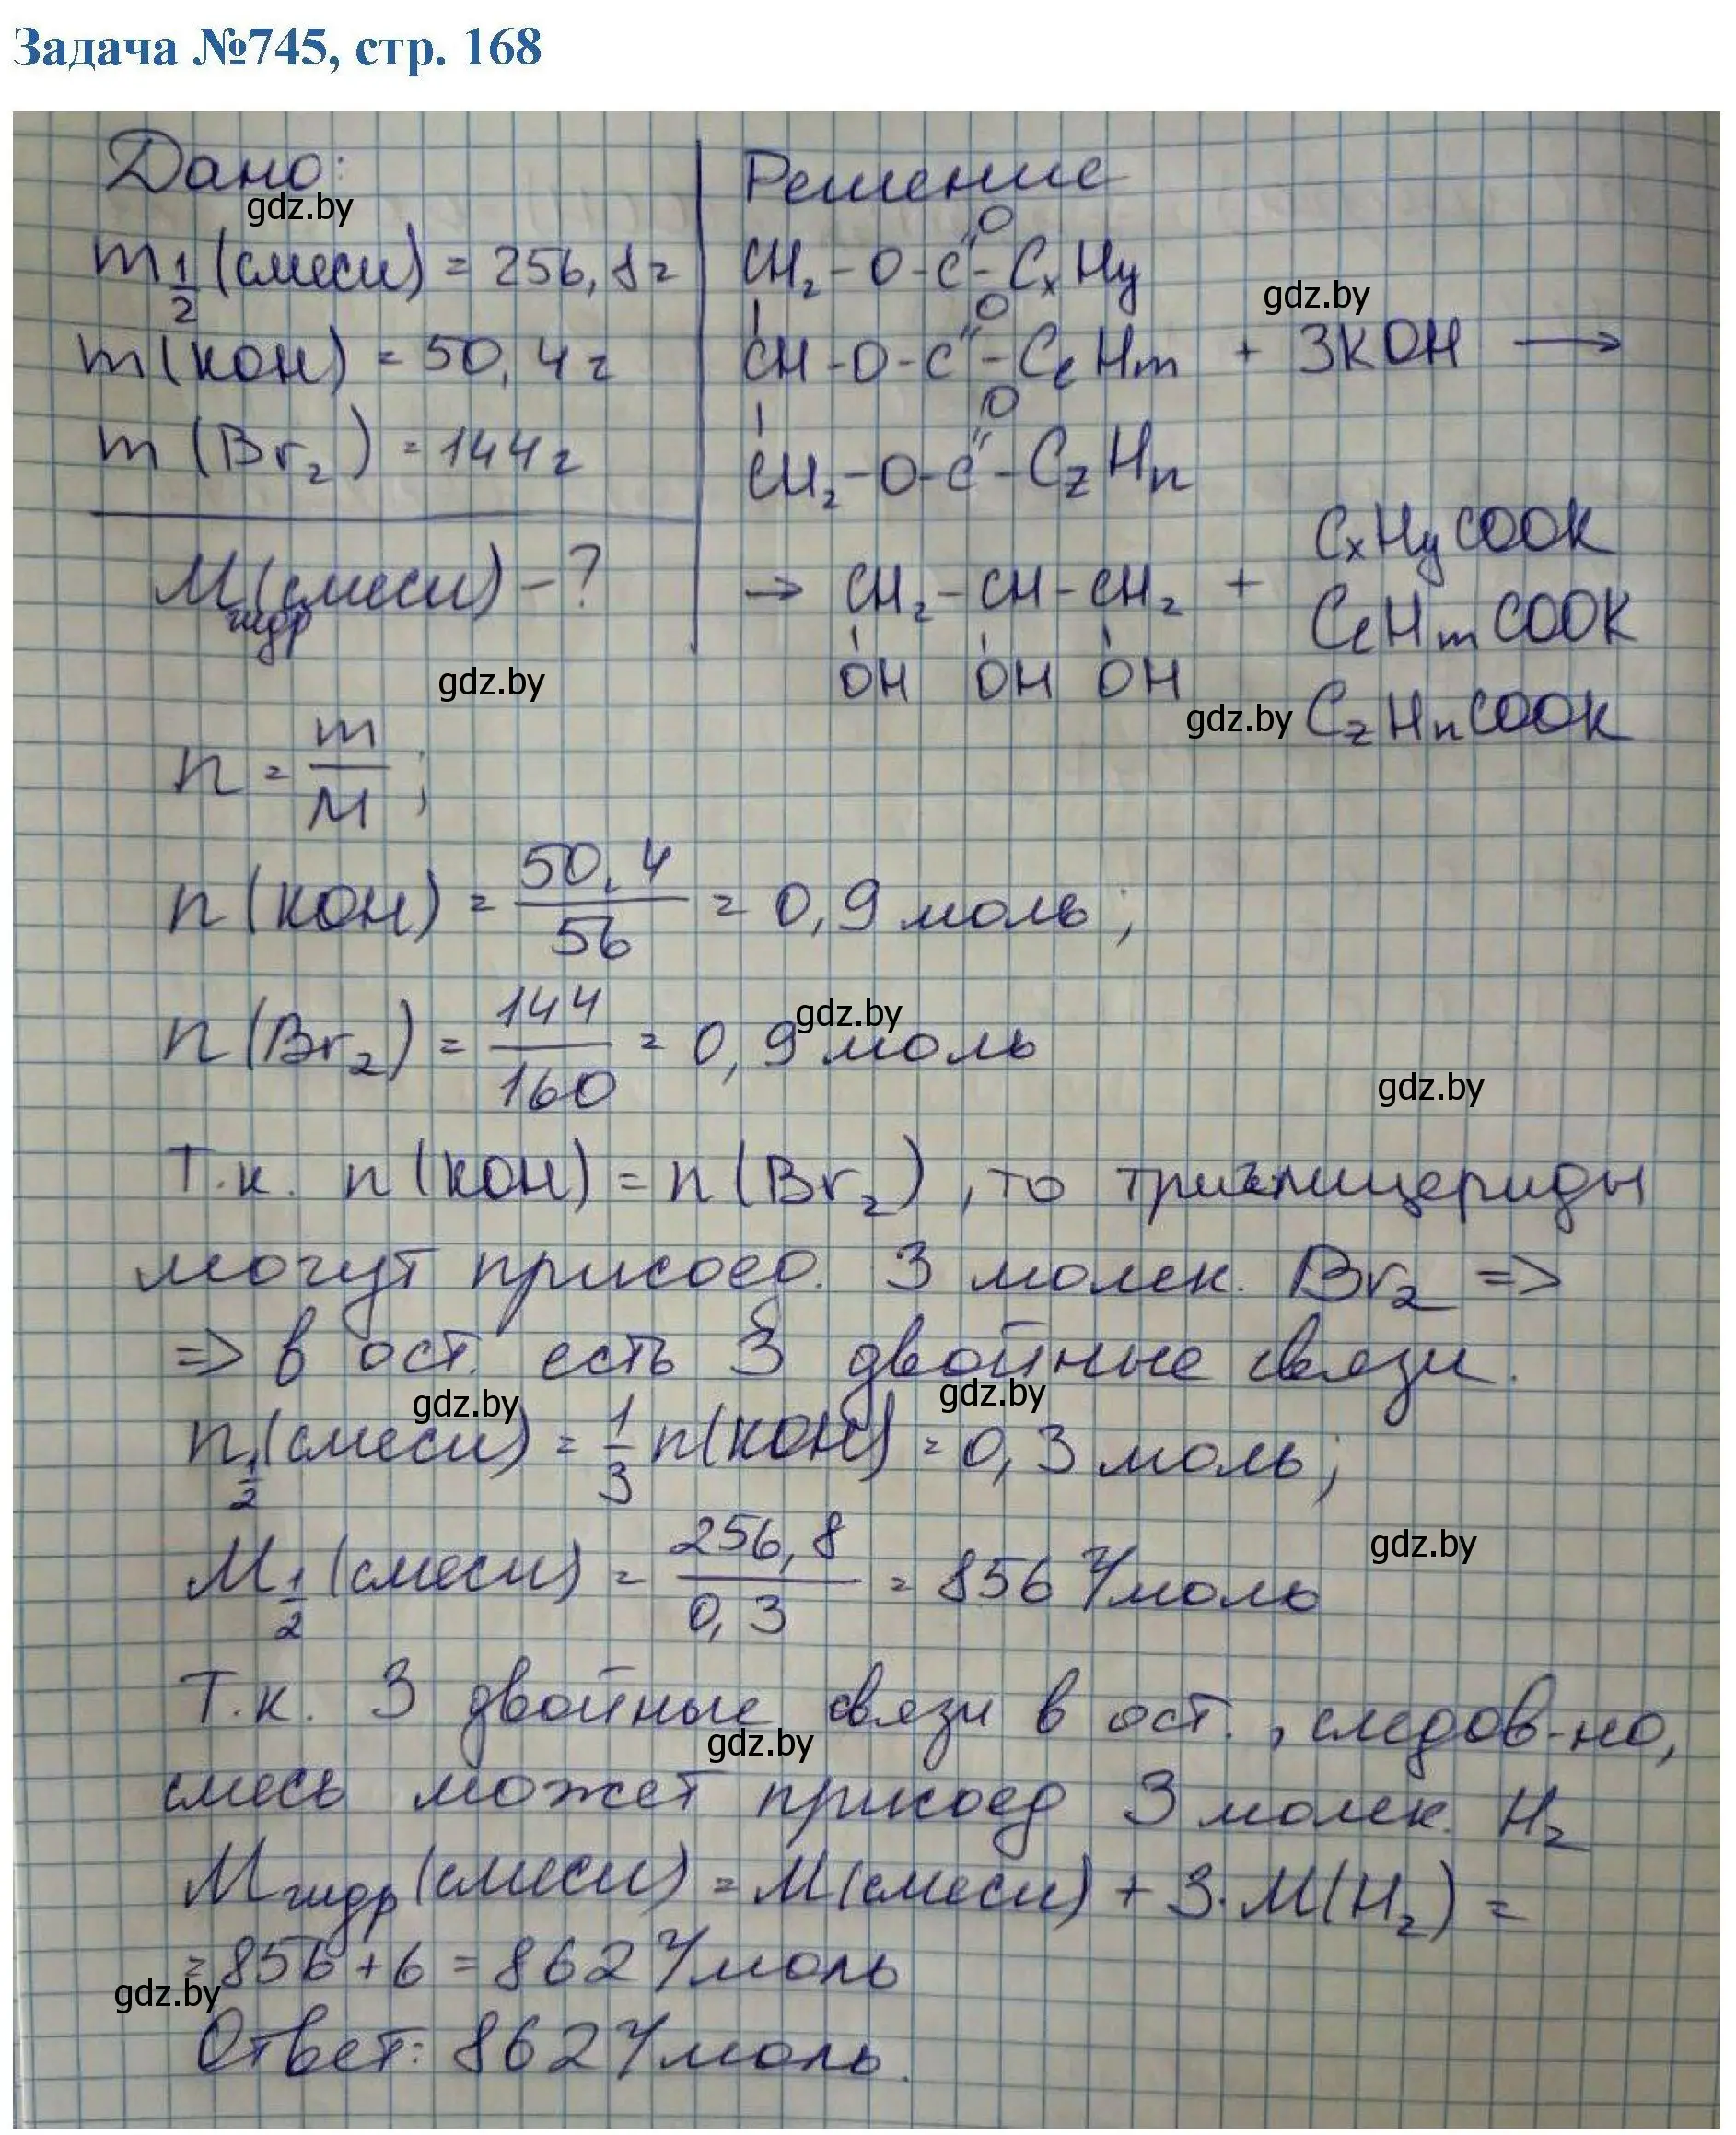 Задача №745, стр. 168
Дано:
gdz.by
m 1/2 (смеси) = 256,8 г
m (KOH) = 50,4 г
m (Br₂) = 144 г
Mгидр (смеси) - ?
gdz.by
Решение
CH₂ - O - C(=O) - CxHy
gdz.by
CH - O - C(=O) - CeHm + 3KOH →
CH₂ - O - C(=O) - CzHn
→ CH₂ - CH - CH₂ + CxHyCOOK
OH OH OH CeHmCOOK
gdz.by CzHnCOOK
n = m/M ;
n (KOH) = 50,4/56 = 0,9 моль ;
n (Br₂) = 144/160 = 0,9 моль
gdz.by
gdz.by
Т.к. n (KOH) = n (Br₂) , то триглицериды
могут присоед. 3 молек. Br₂ =>
=> в ост. есть 3 двойные связи.
gdz.by gdz.by
n 1/2 (смеси) = 1/3 n(KOH) = 0,3 моль ;
M 1/2 (смеси) = 256,8/0,3 = 856 г/моль
gdz.by
Т.к. 3 двойные связи в ост. , следов-но,
gdz.by
смесь может присоед 3 молек. H₂
Mгидр (смеси) = M(смеси) + 3·M(H₂) =
= 856 + 6 = 862 г/моль
gdz.by
Ответ: 862 г/моль.